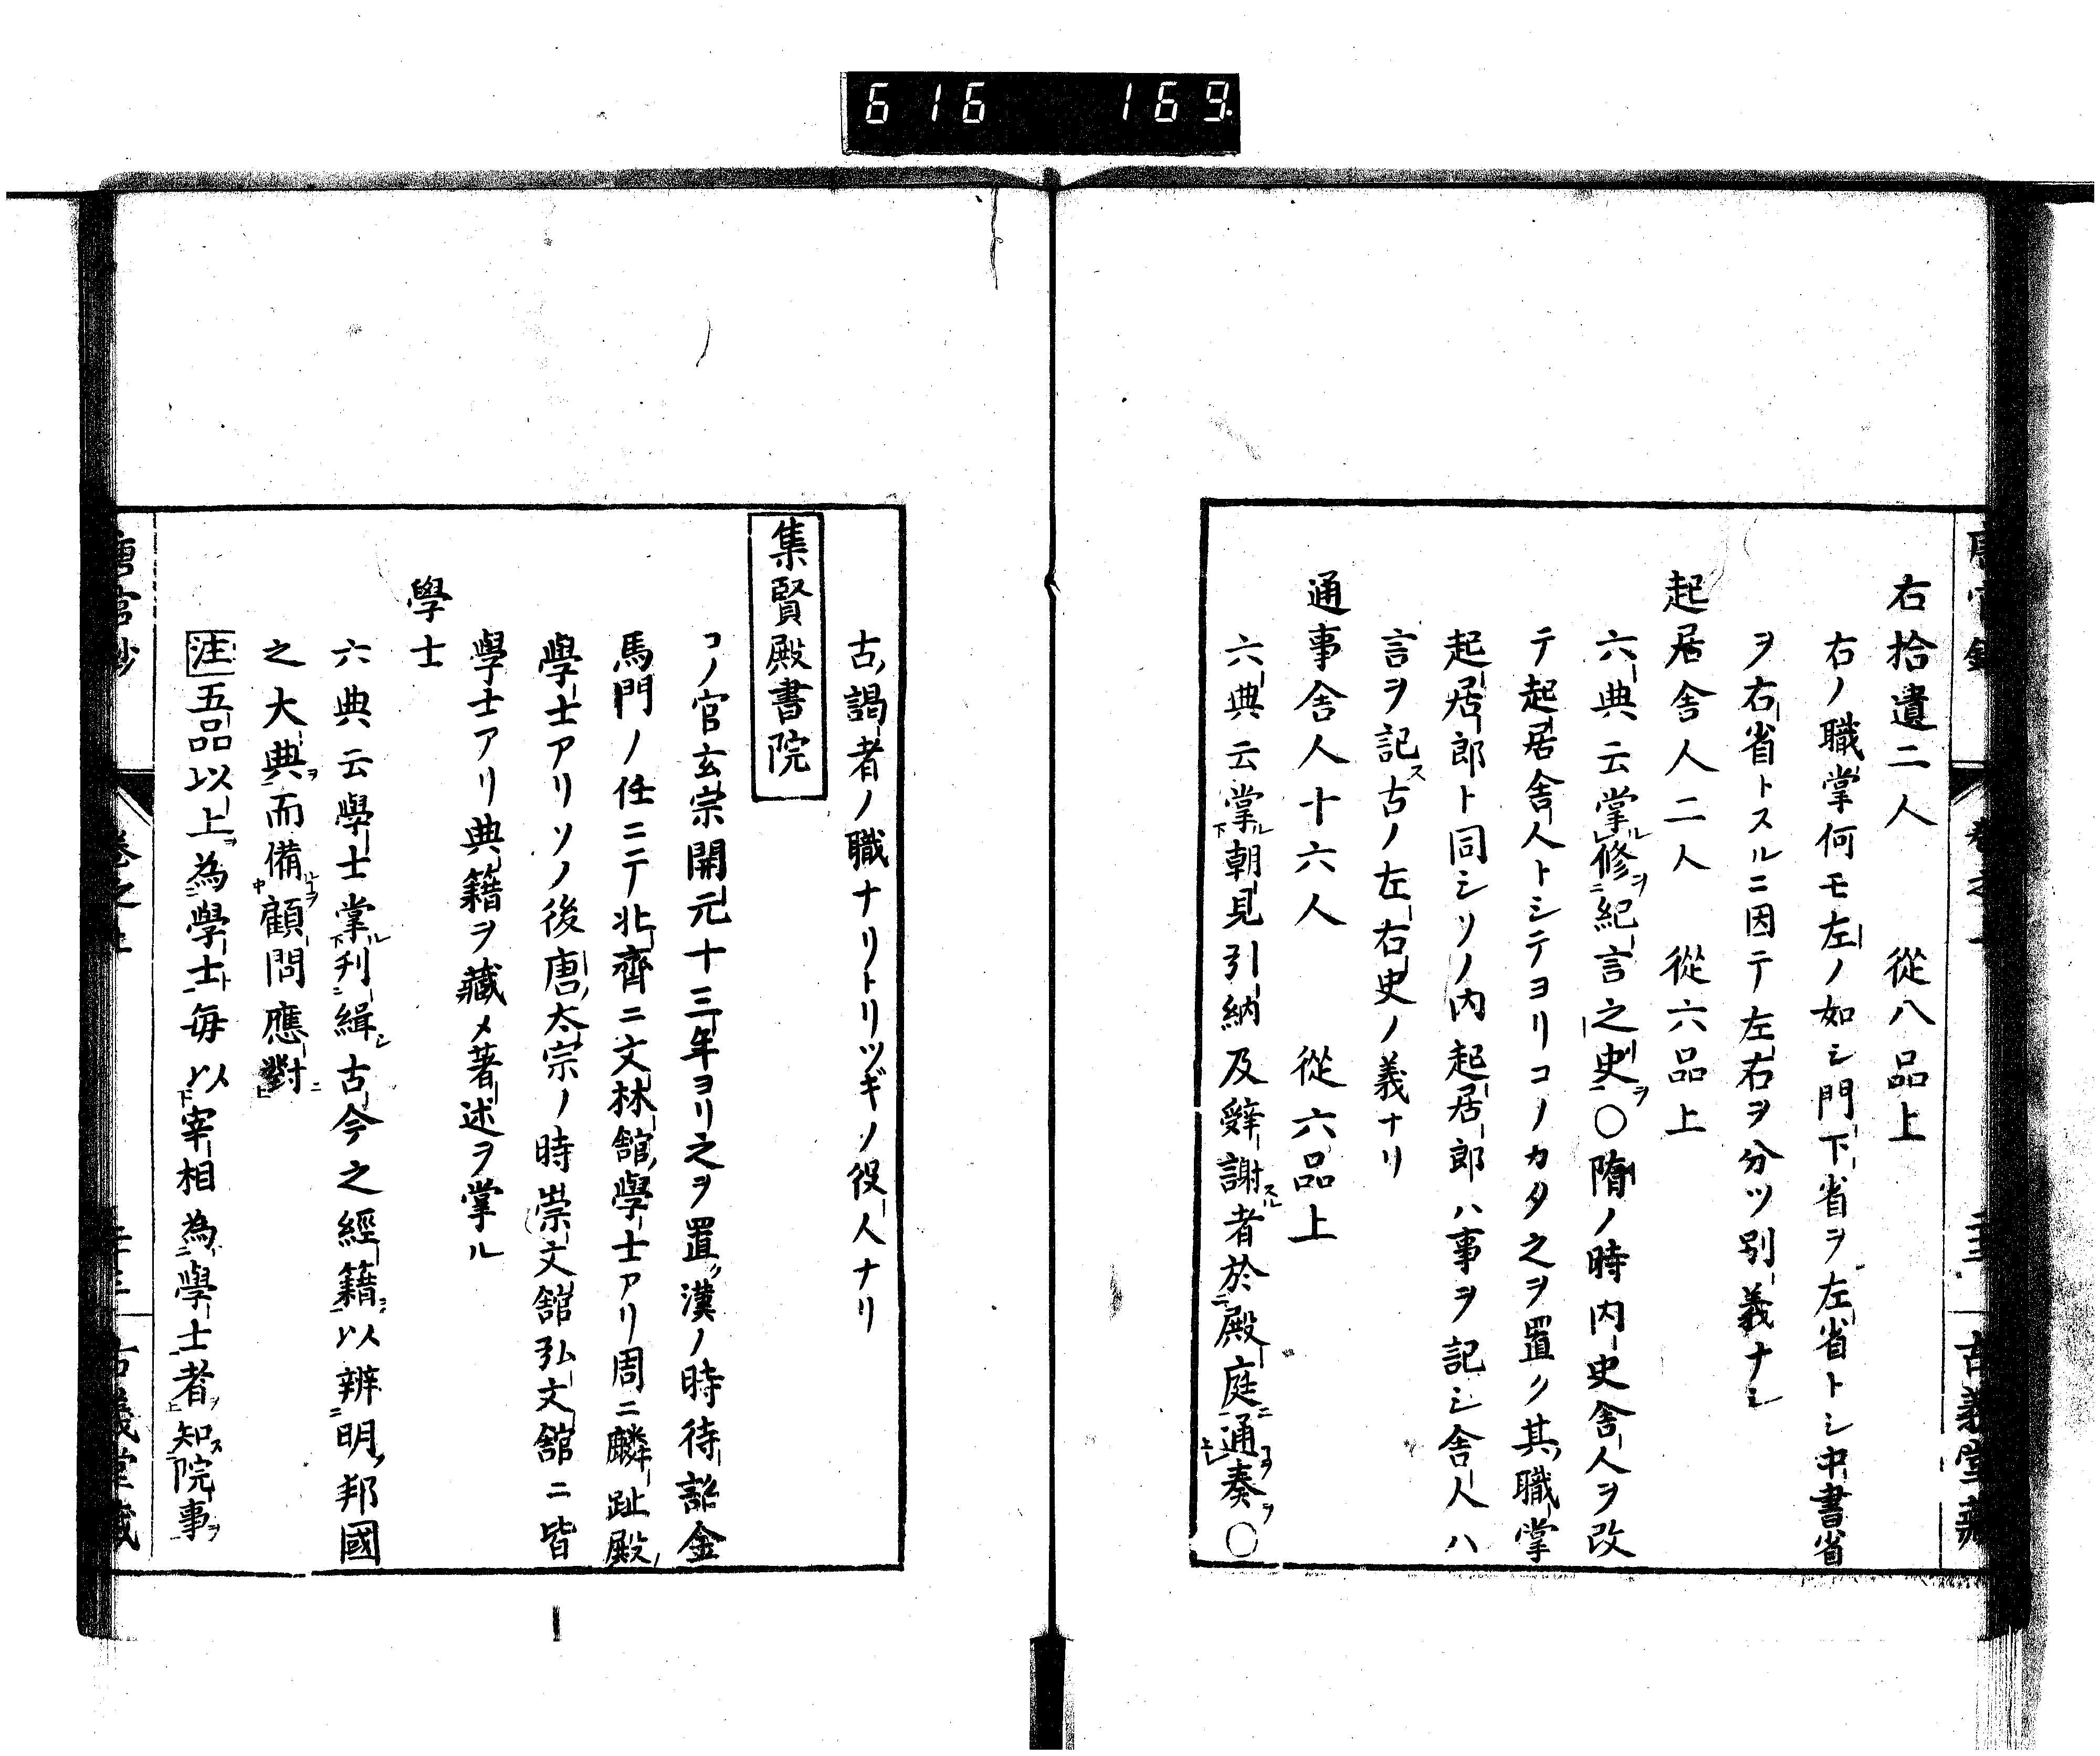 616 169
右拾遺二人 從八品上
右ノ職掌何モ左ノ如シ門下省ヲ左省トシ中書省
ヲ右省トスルニ因テ左右ヲ分ツ別義ナシ
起居舎人二人 從六品上
六典云掌修紀言之史○隋ノ時内史舎人ヲ改
テ起居舎人トシテヨリコノカタ之ヲ置ク其職掌
起居郎ト同シソノ内起居郎ハ事ヲ記シ舎人ハ
言ヲ記ス古ノ左右史ノ義ナリ
通事舎人十六人 從六品上
六典云掌朝見引納及辭謝者於殿庭通奏○
古謁者ノ職ナリトリツギノ役人ナリ
集賢殿書院
コノ官玄宗開元十三年ヨリ之ヲ置ク漢ノ時待詔金
馬門ノ任ニテ北齊ニ文林舘學士アリ周ニ麟趾殿
學士アリソノ後唐太宗ノ時崇文舘弘文舘ニ皆
學士アリ典籍ヲ藏メ著述ヲ掌ル
學士
六典云學士掌刋緝古今之經籍以辨明邦國
之大典而備顧問應對
注五品以上為學士毎以宰相為學士者知院事
唐官鈔 卷之上 古義堂藏